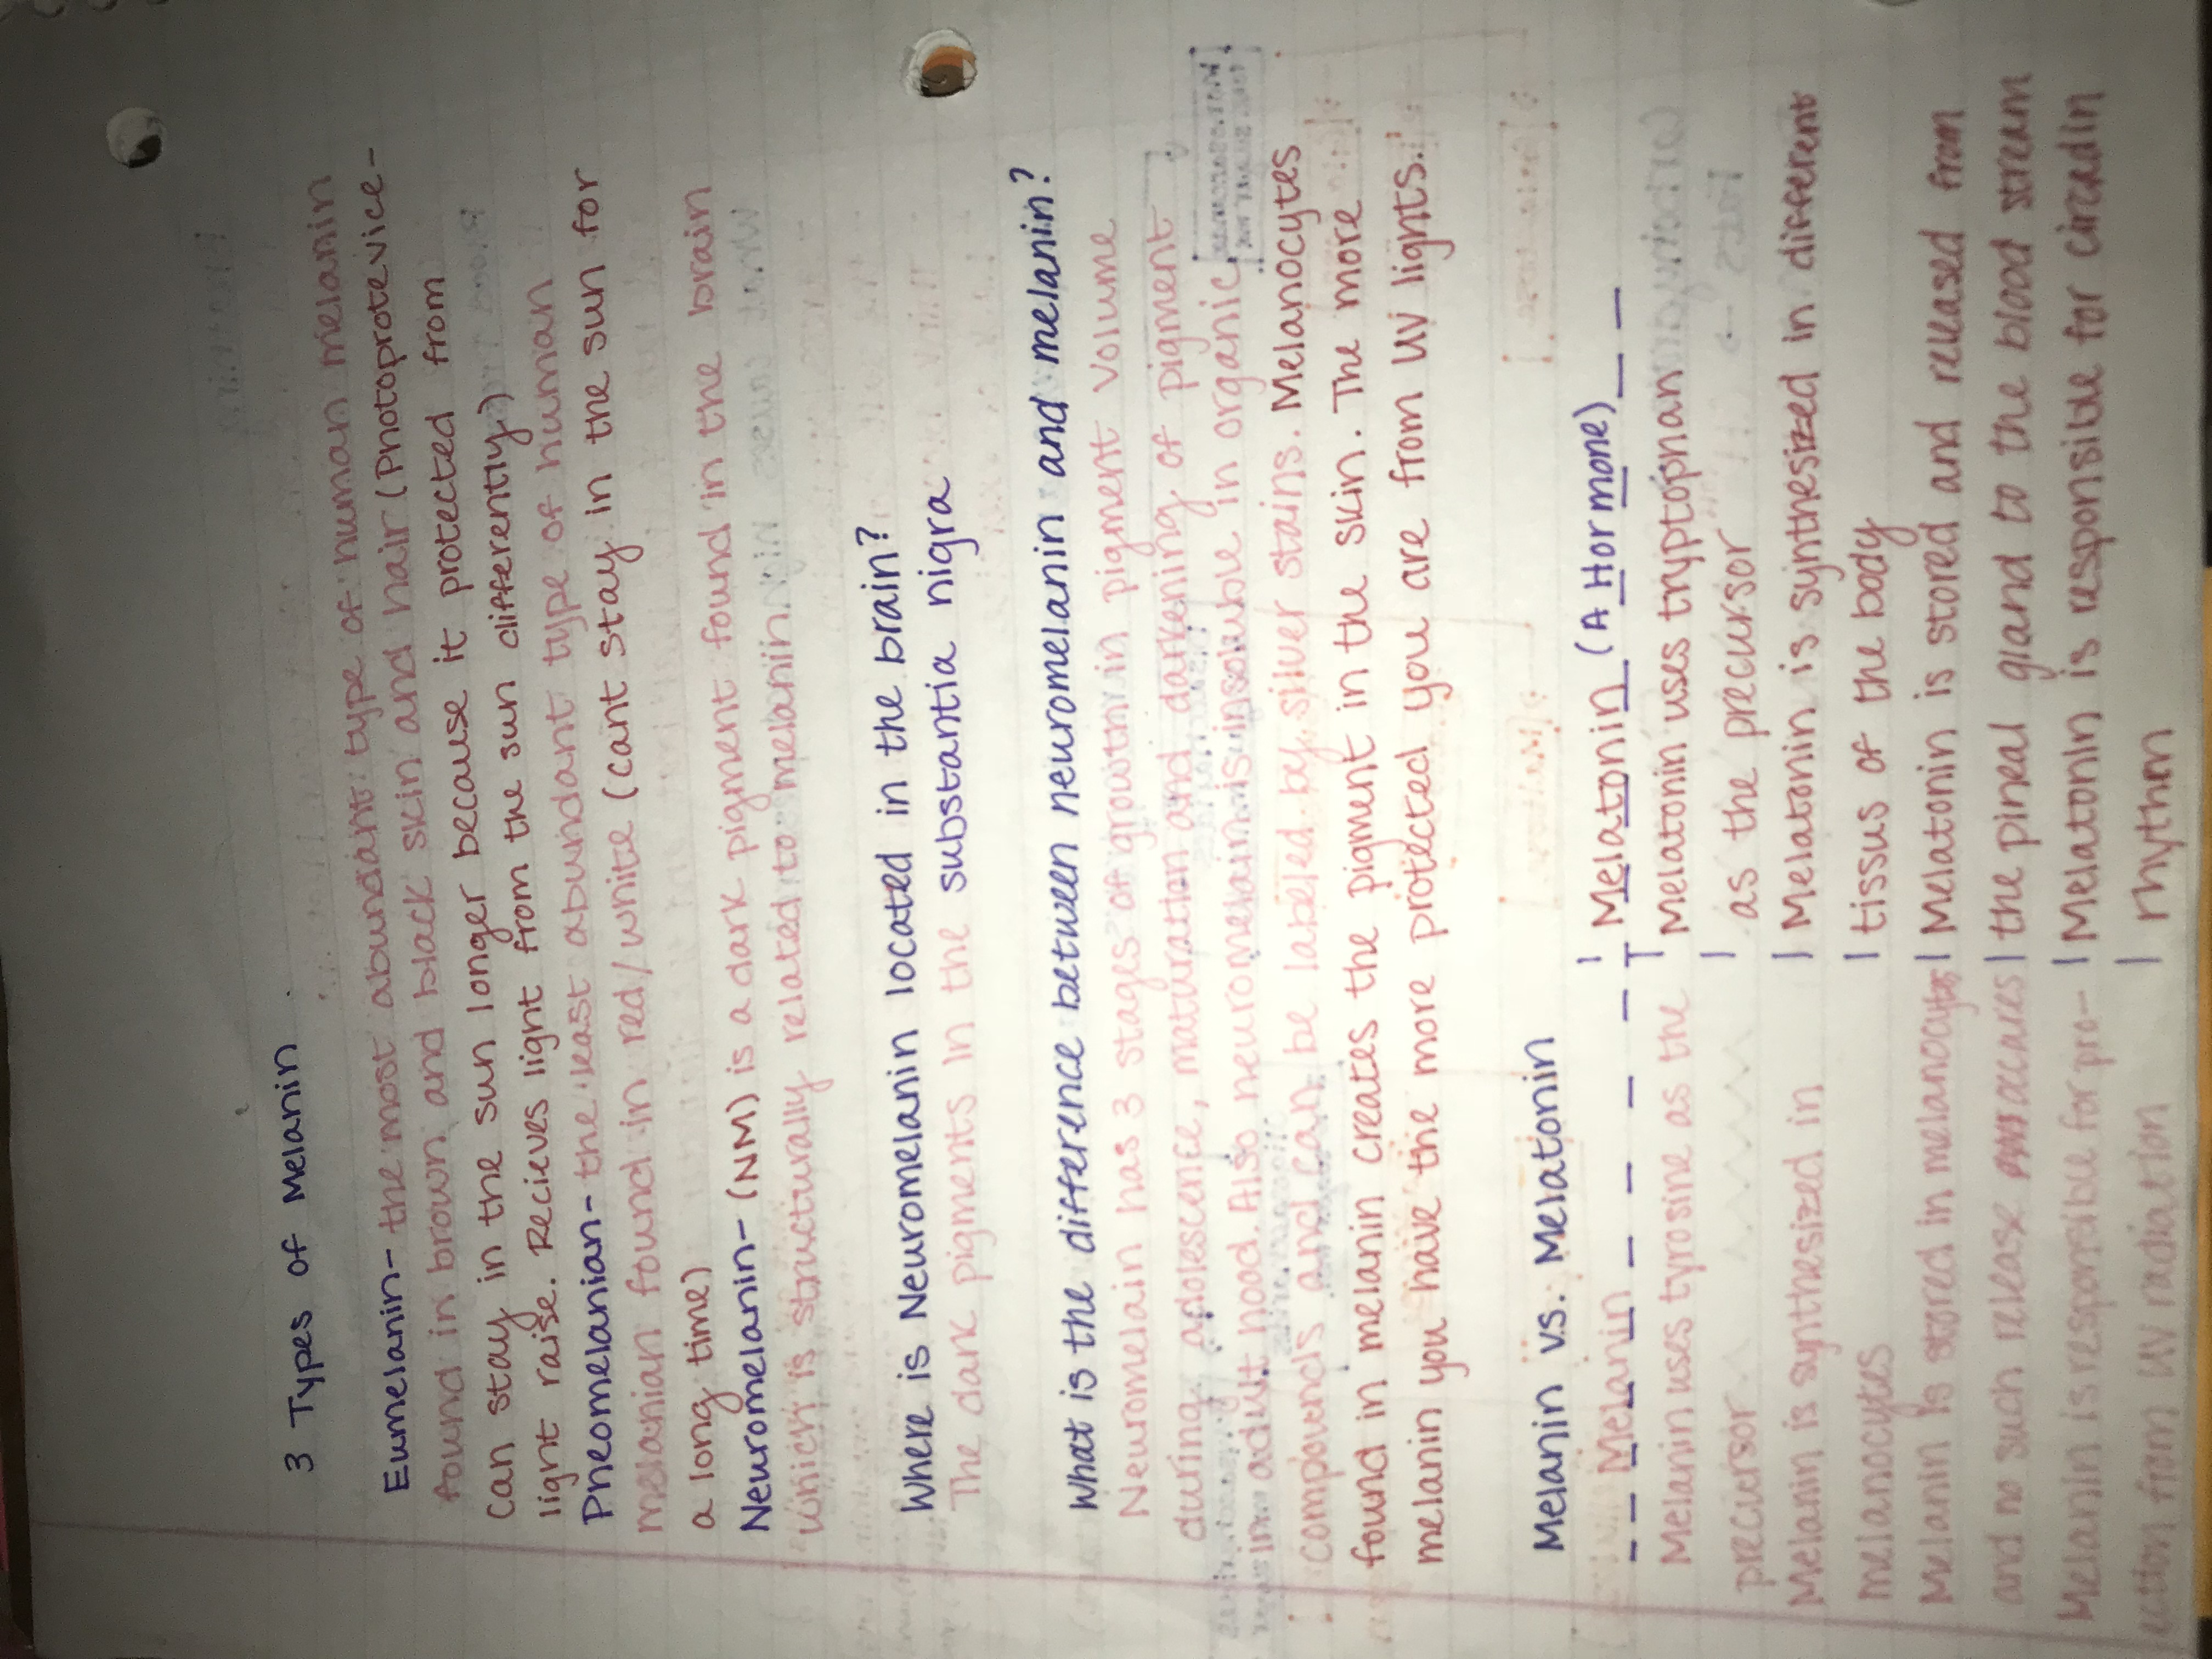 3 Types of Melanin
Eumelanin- the most abundant type of human melanin
found in brown and black skin and hair (Photoprotevice-
can stay in the sun longer because it protected from
light raise. Recieves light from the sun differently)
Pheomelanian- the least abundant type of human
melanian found in red/white (cant stay in the sun for
a long time)
Neuromelanin- (NM) is a dark pigment found in the brain
which is structurally related to melanin
Where is Neuromelanin located in the brain?
The dark pigments in the substantia nigra
What is the difference between neuromelanin and melanin?
Neuromelain has 3 stages of growth in pigment volume
during adolescence, maturation and darkening of pigment
in adult hood. Also neuromelain is insoluble in organic
compounds and can be labeled by silver stains. Melanocytes
found in melanin creates the pigment in the skin. The more
melanin you have the more protected you are from UV lights.
Melanin vs. Melatonin
Melanin
Melanin uses tyrosine as the
precursor
Melanin is synthesized in
melanocytes
Melanin is stored in melanocytes
and no such release occures
Melanin is responsible for pro-
ection from UV radiation
Melatonin (A Hormone)
Melatonin uses tryptophan
as the precursor
Melatonin is synthesized in different
tissus of the body
Melatonin is stored and released from
the pineal gland to the blood stream
Melatonin is responsible for circadin
rhythm